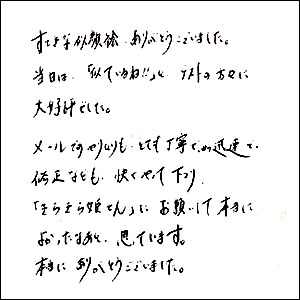 すてきな似顔絵、ありがとうございました。
当日は、「似ているね!!」と、ゲストの方々に
大好評でした。
メールでのやりとりも、とても丁寧で、迅速で、
修正なども、快くやって下さり、
「きらきら姫さん」にお願いして本当に
よかったなあと、思っています。
本当にありがとうございました。